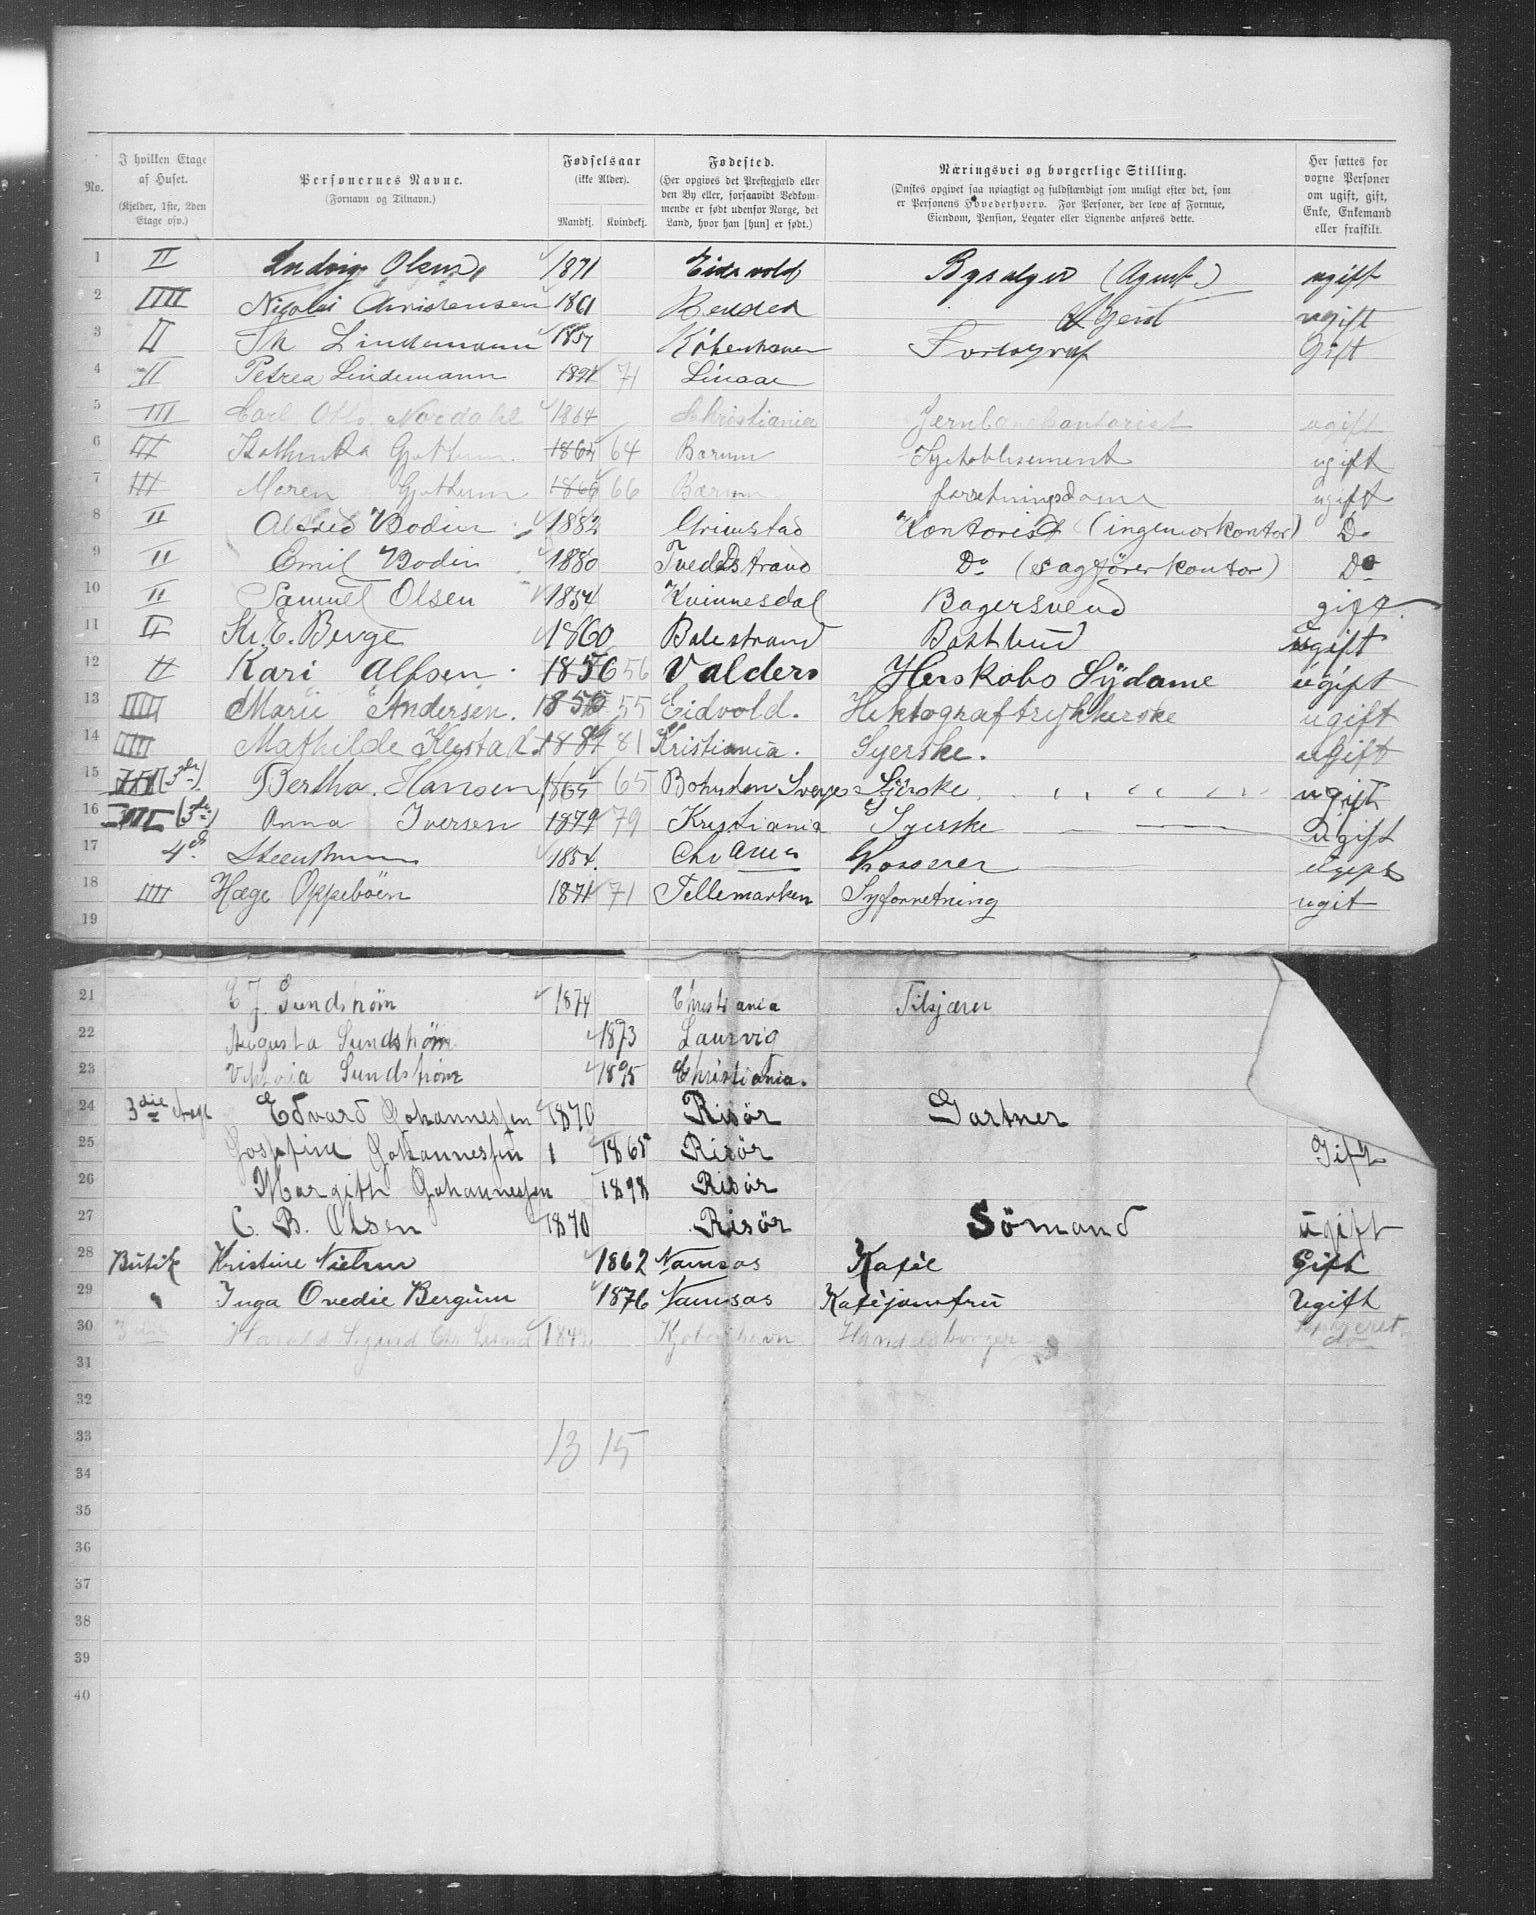 No.
I hvilken Etage af Huset. (Kjelder, 1ste, 2den Etage osv.)
Personernes Navne. (Fornavn og Tilnavn.)
Fødselsaar (ikke Alder). Mandkj. Kvindekj.
Fødested. (Her opgives det Prestegjæld eller den By eller, forsaavidt Vedkommende er født udenfor Norge, det Land, hvor han [hun] er født.)
Næringsvei og borgerlige Stilling. (Ønskes opgivet saa nøiagtigt og fuldstændigt som muligt efter det, som er Personens Hovederhverv. For Personer, der leve af Formue, Eiendom, Pension, Legater eller Lignende anføres dette.
Her sættes for voxne Personer om ugift, gift, Enke, Enkemand eller fraskilt.
1 II Ludvig Olsen 1871 Eidsvold (Agent) ugift
2 IIII Nicolai Christensen 1861 Agent ugift
3 II Th Lindemann 1857 København Fotograf Gift
4 II Petrea Lindemann 1871 71
5 III Carl Otto Nordahl 1864 Christiania Jernbanekontorist ugift
6 III Gjøttum 1864 64 Bærum Syetablisement ugift
7 III Maren Gjøttum 1866 66 Bærum forretningsdame ugift
8 II Alfred Bodin 1882 Grimstad Kontorist (ingeniørkontor) Do
9 II Emil Bodin 1880 Tvedestrand Do (sagførerkontor) Do
10 II Samuel Olsen 1854 Kvinnesdal Bagersvend gift
11 II Kr. E. Berge 1860 Balestrand Postbud ugift
12 II Kari Alfsen 1856 56 Valders Herskabs Sÿdame ugift
13 IIIII Marie Andersen. 1855 55 Eidvold. Hektograftrykkerske ugift
14 IIII Mathilde 1881 81 Kristiania. Syerske. ugift
15 III (3de) Bertha Hansen 1865 65 Bohuslen Sverge Syerske ugift
16 III (3de) Anna Iversen 1879 79 Kristiania Syerske Ugift
17 4de Steenstrup 1854 Chr ania ugift
18 IIII Hæge Oppebøen 1871 71 Tellemarken Syforretning ugit
19
21 C J Sundstrøm 1874 Christiania Filskjærer
22 Augusta Sundstrøm 1873 Laurvig
23 Viktoria Sundstrøm 1895 Christiania.
24 3die Etage Edvard Johannessen 1870 Risör Gartner
25 Josefine Johannessen 1 1865 Risör Gift
26 Margith Johannessen 1898 Risör
27 C. B. Olsen 1870 Risör Sömand ugift
28 Butik Kristine Nielsen 1862 Namsos Kafée Gift
29 " Inga Ovedie Bergum 1876 Namsos Kaféjomfru Ugift
30 Harald Sigurd Chr. Kjøbenhavn Handelsborger
31
32
33 13 15
34
35
36
37
38
39
40